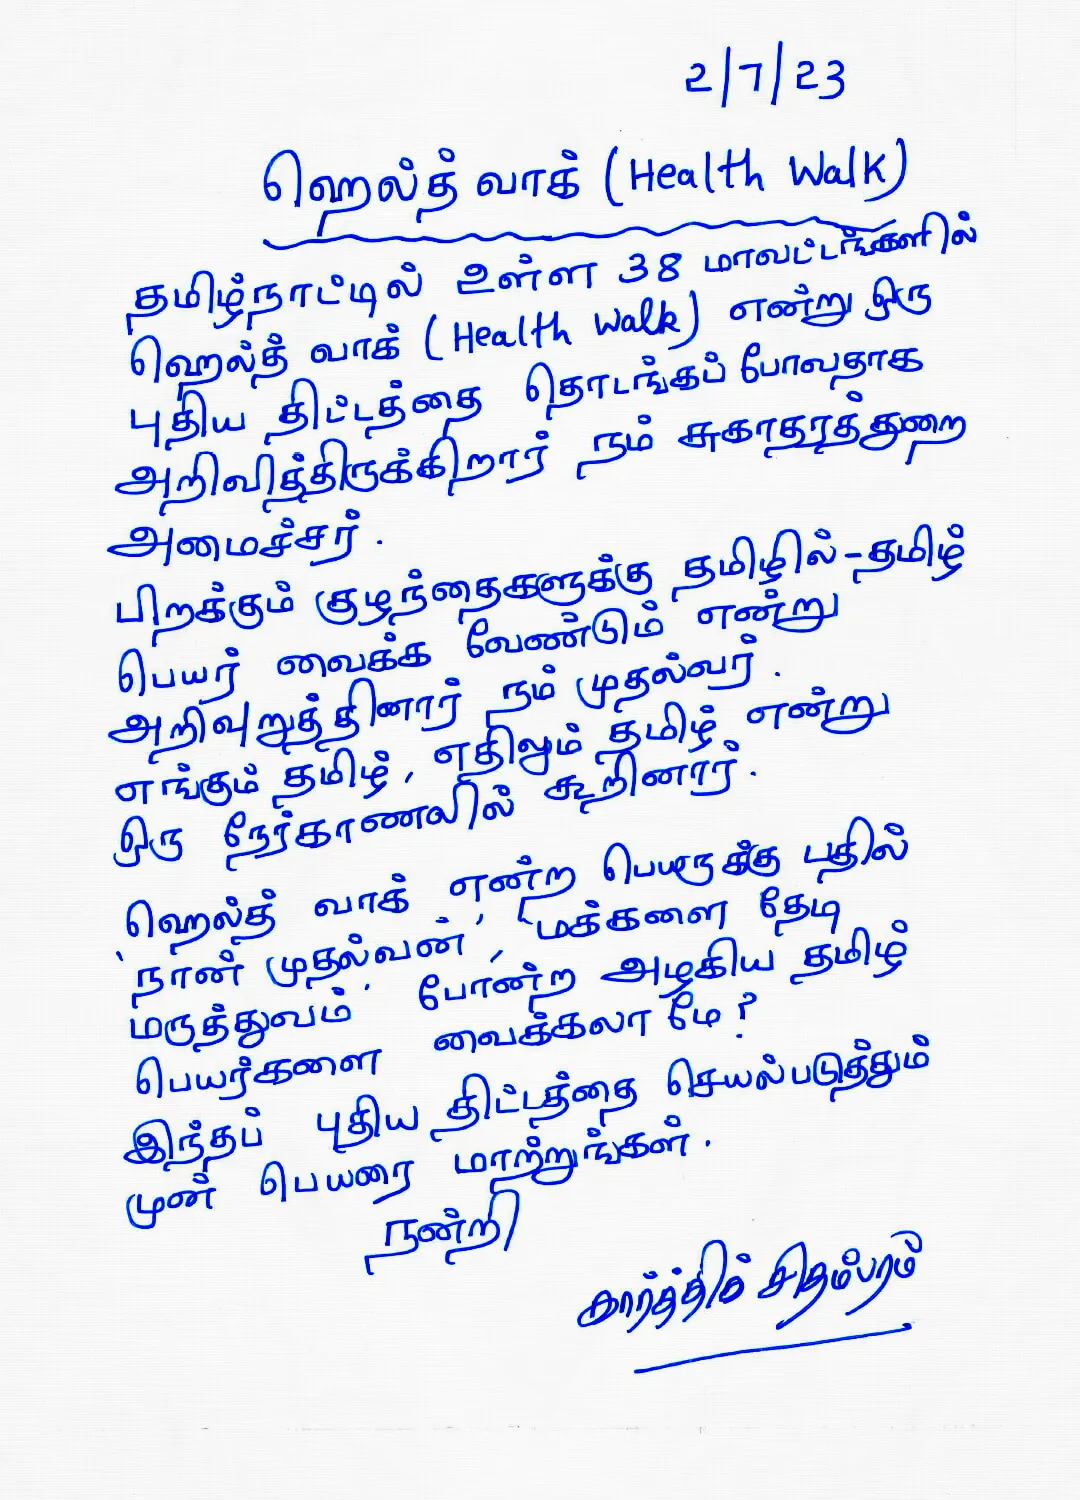 2/7/23
ஹெல்த் வாக் (Health Walk)
தமிழ்நாட்டில் உள்ள 38 மாவட்டங்களில்
ஹெல்த் வாக் (Health Walk) என்று ஒரு
புதிய திட்டத்தை தொடங்கப் போவதாக
அறிவித்திருக்கிறார் நம் சுகாதாரத்துறை
அமைச்சர்.
பிறக்கும் குழந்தைகளுக்கு தமிழில் - தமிழ்
பெயர் வைக்க வேண்டும் என்று
அறிவுறுத்தினார் நம் முதல்வர்.
எங்கும் தமிழ், எதிலும் தமிழ் என்று
ஒரு நேர்காணலில் கூறினார்.
ஹெல்த் வாக் என்ற பெயருக்கு பதில்
'நான் முதல்வன்', 'மக்களை தேடி
மருத்துவம்' போன்ற அழகிய தமிழ்
பெயர்களை வைக்கலாமே?
இந்தப் புதிய திட்டத்தை செயல்படுத்தும்
முன் பெயரை மாற்றுங்கள்.
நன்றி
கார்த்திக் சிதம்பரம்